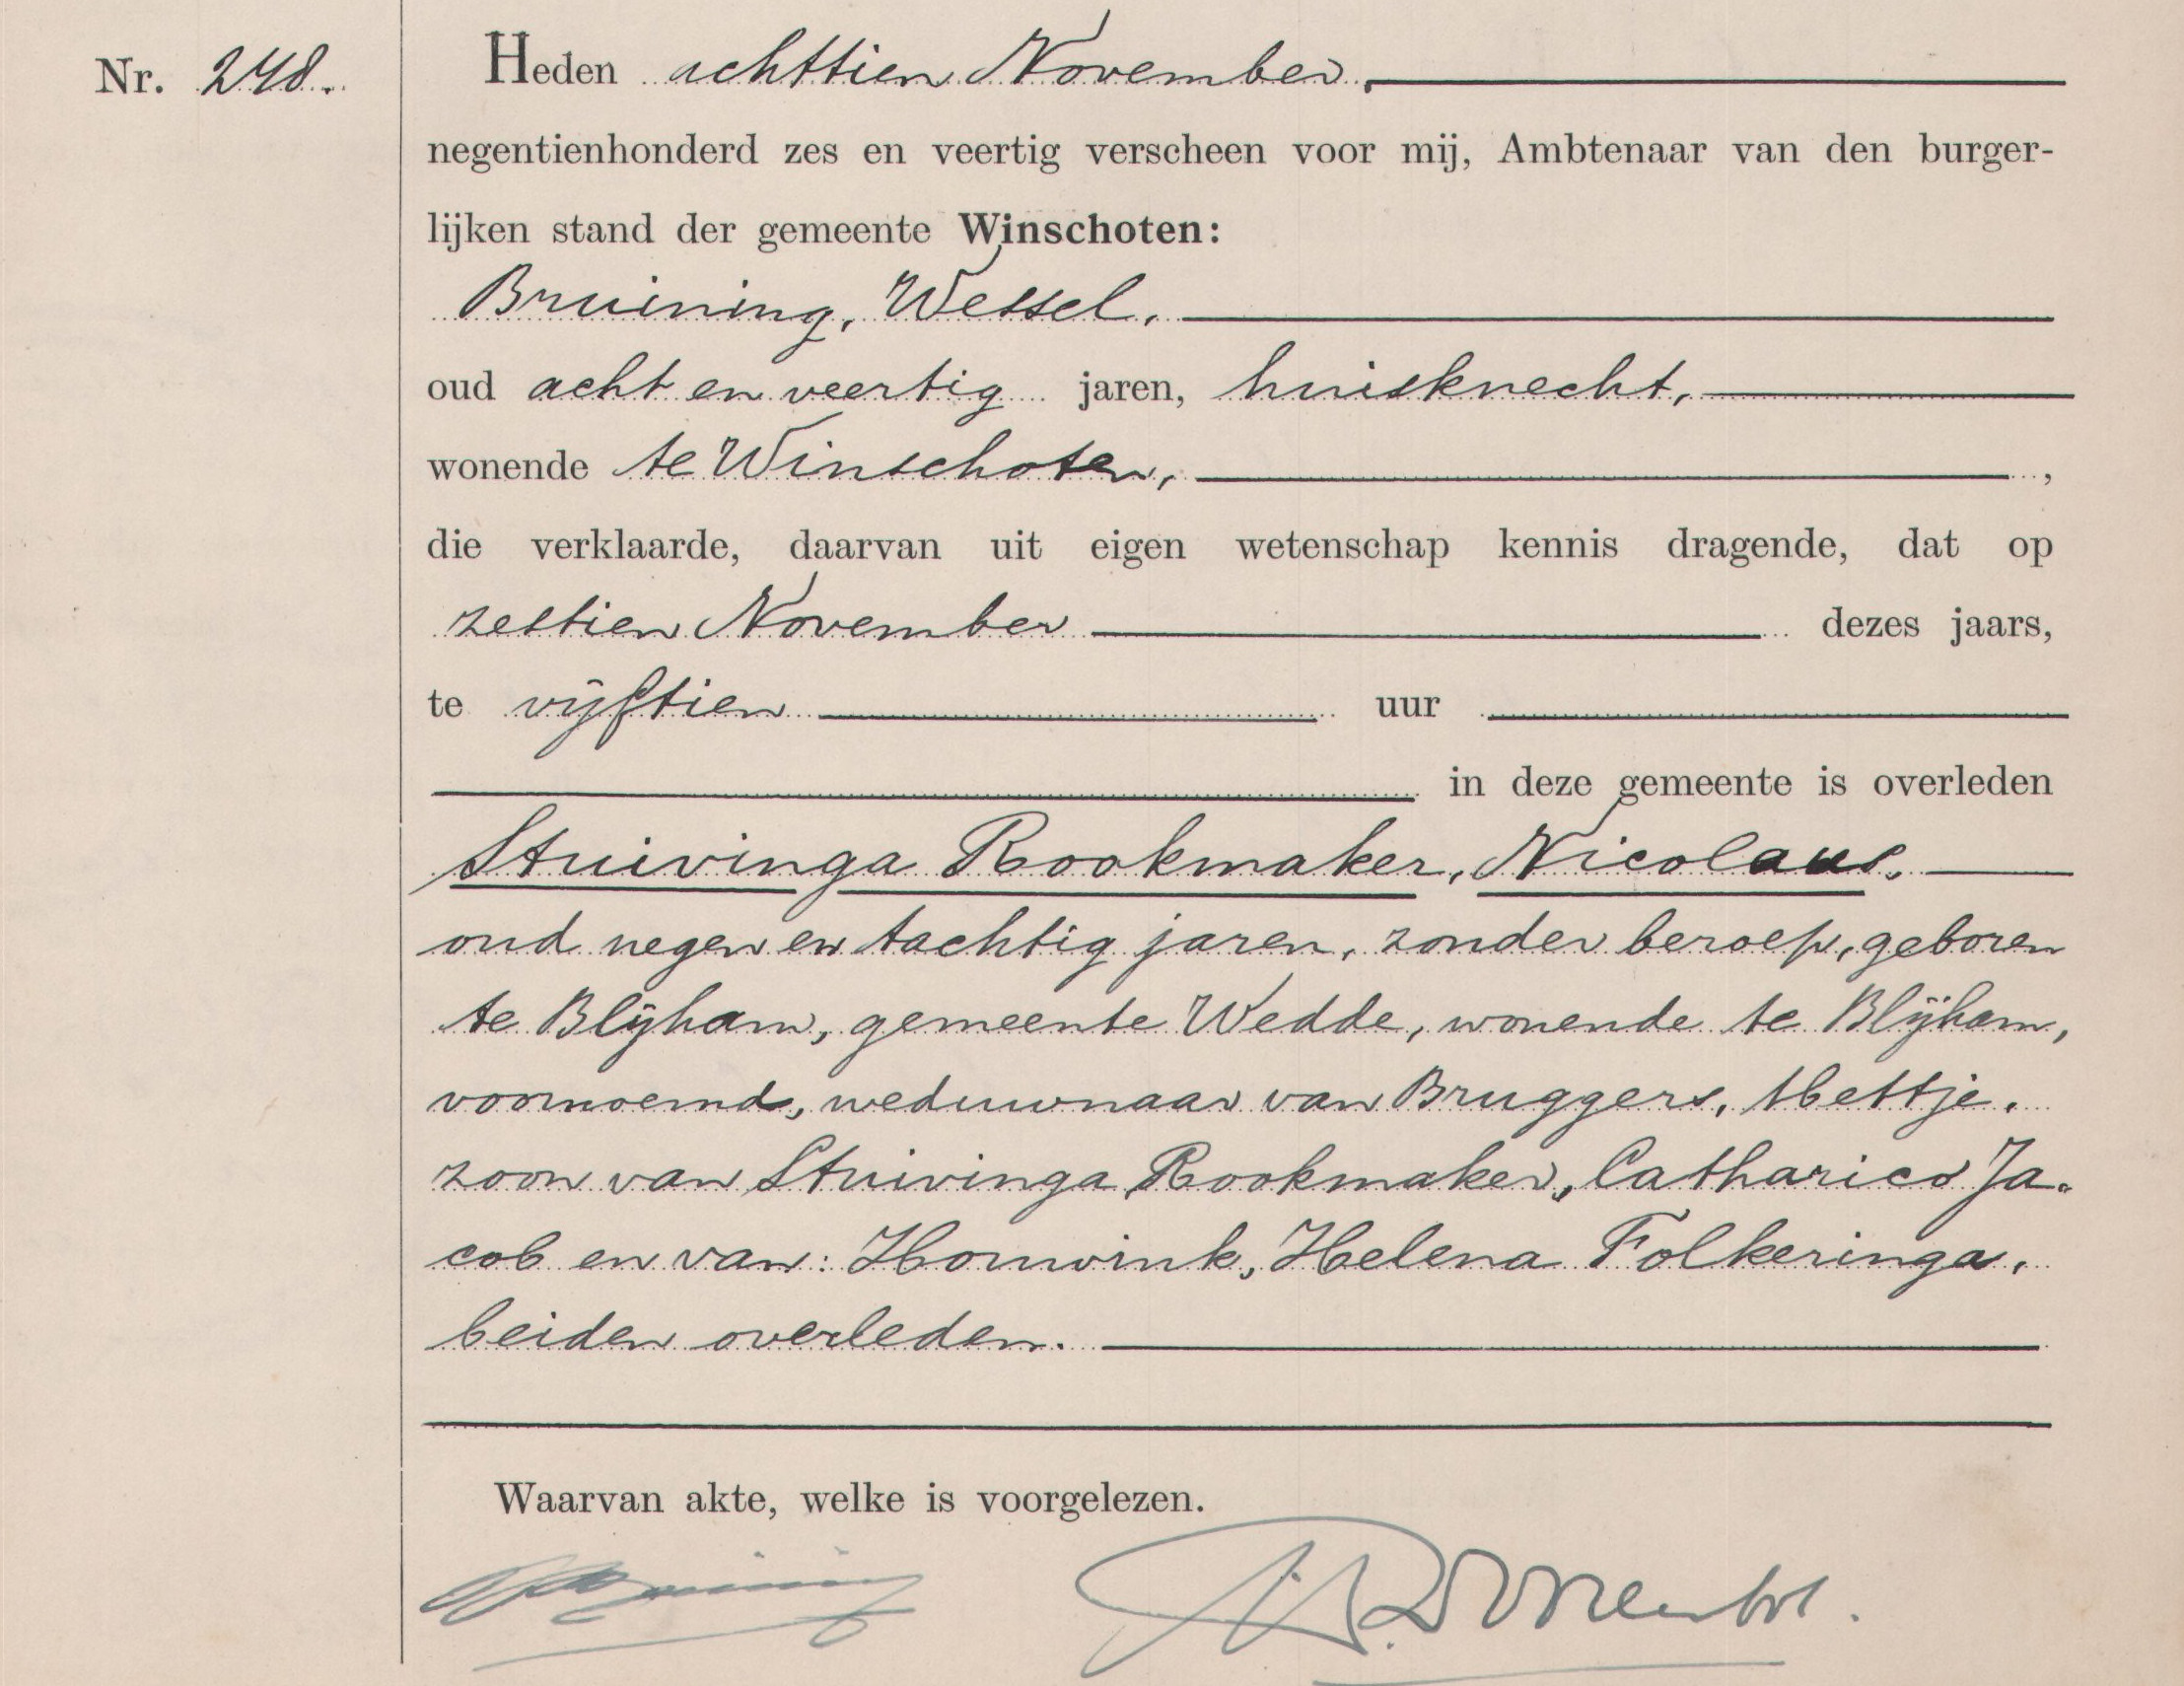 Nr. 248.
Heden achttien November,
negentienhonderd zes en veertig verscheen voor mij, Ambtenaar van den burger-
lijken stand der gemeente Winschoten:
Bruining, Wessel,
oud acht en veertig jaren, huisknecht,
wonende te Winschoten, ,
die verklaarde, daarvan uit eigen wetenschap kennis dragende, dat op
zestien November dezes jaars,
te vijftien uur
in deze gemeente is overleden
Stuivinga Rookmaker, Nicolaus,
oud negen en tachtig jaren, zonder beroep, geboren
te Blijham, gemeente Wedde, wonende te Blijham,
voornoemd, weduwnaar van Bruggers, Hettje,
zoon van Stuivinga Rookmaker, Catharico Ja-
cob en van: Houwink, Helena Folkeringa,
beiden overleden.
Waarvan akte, welke is voorgelezen.
Bruining